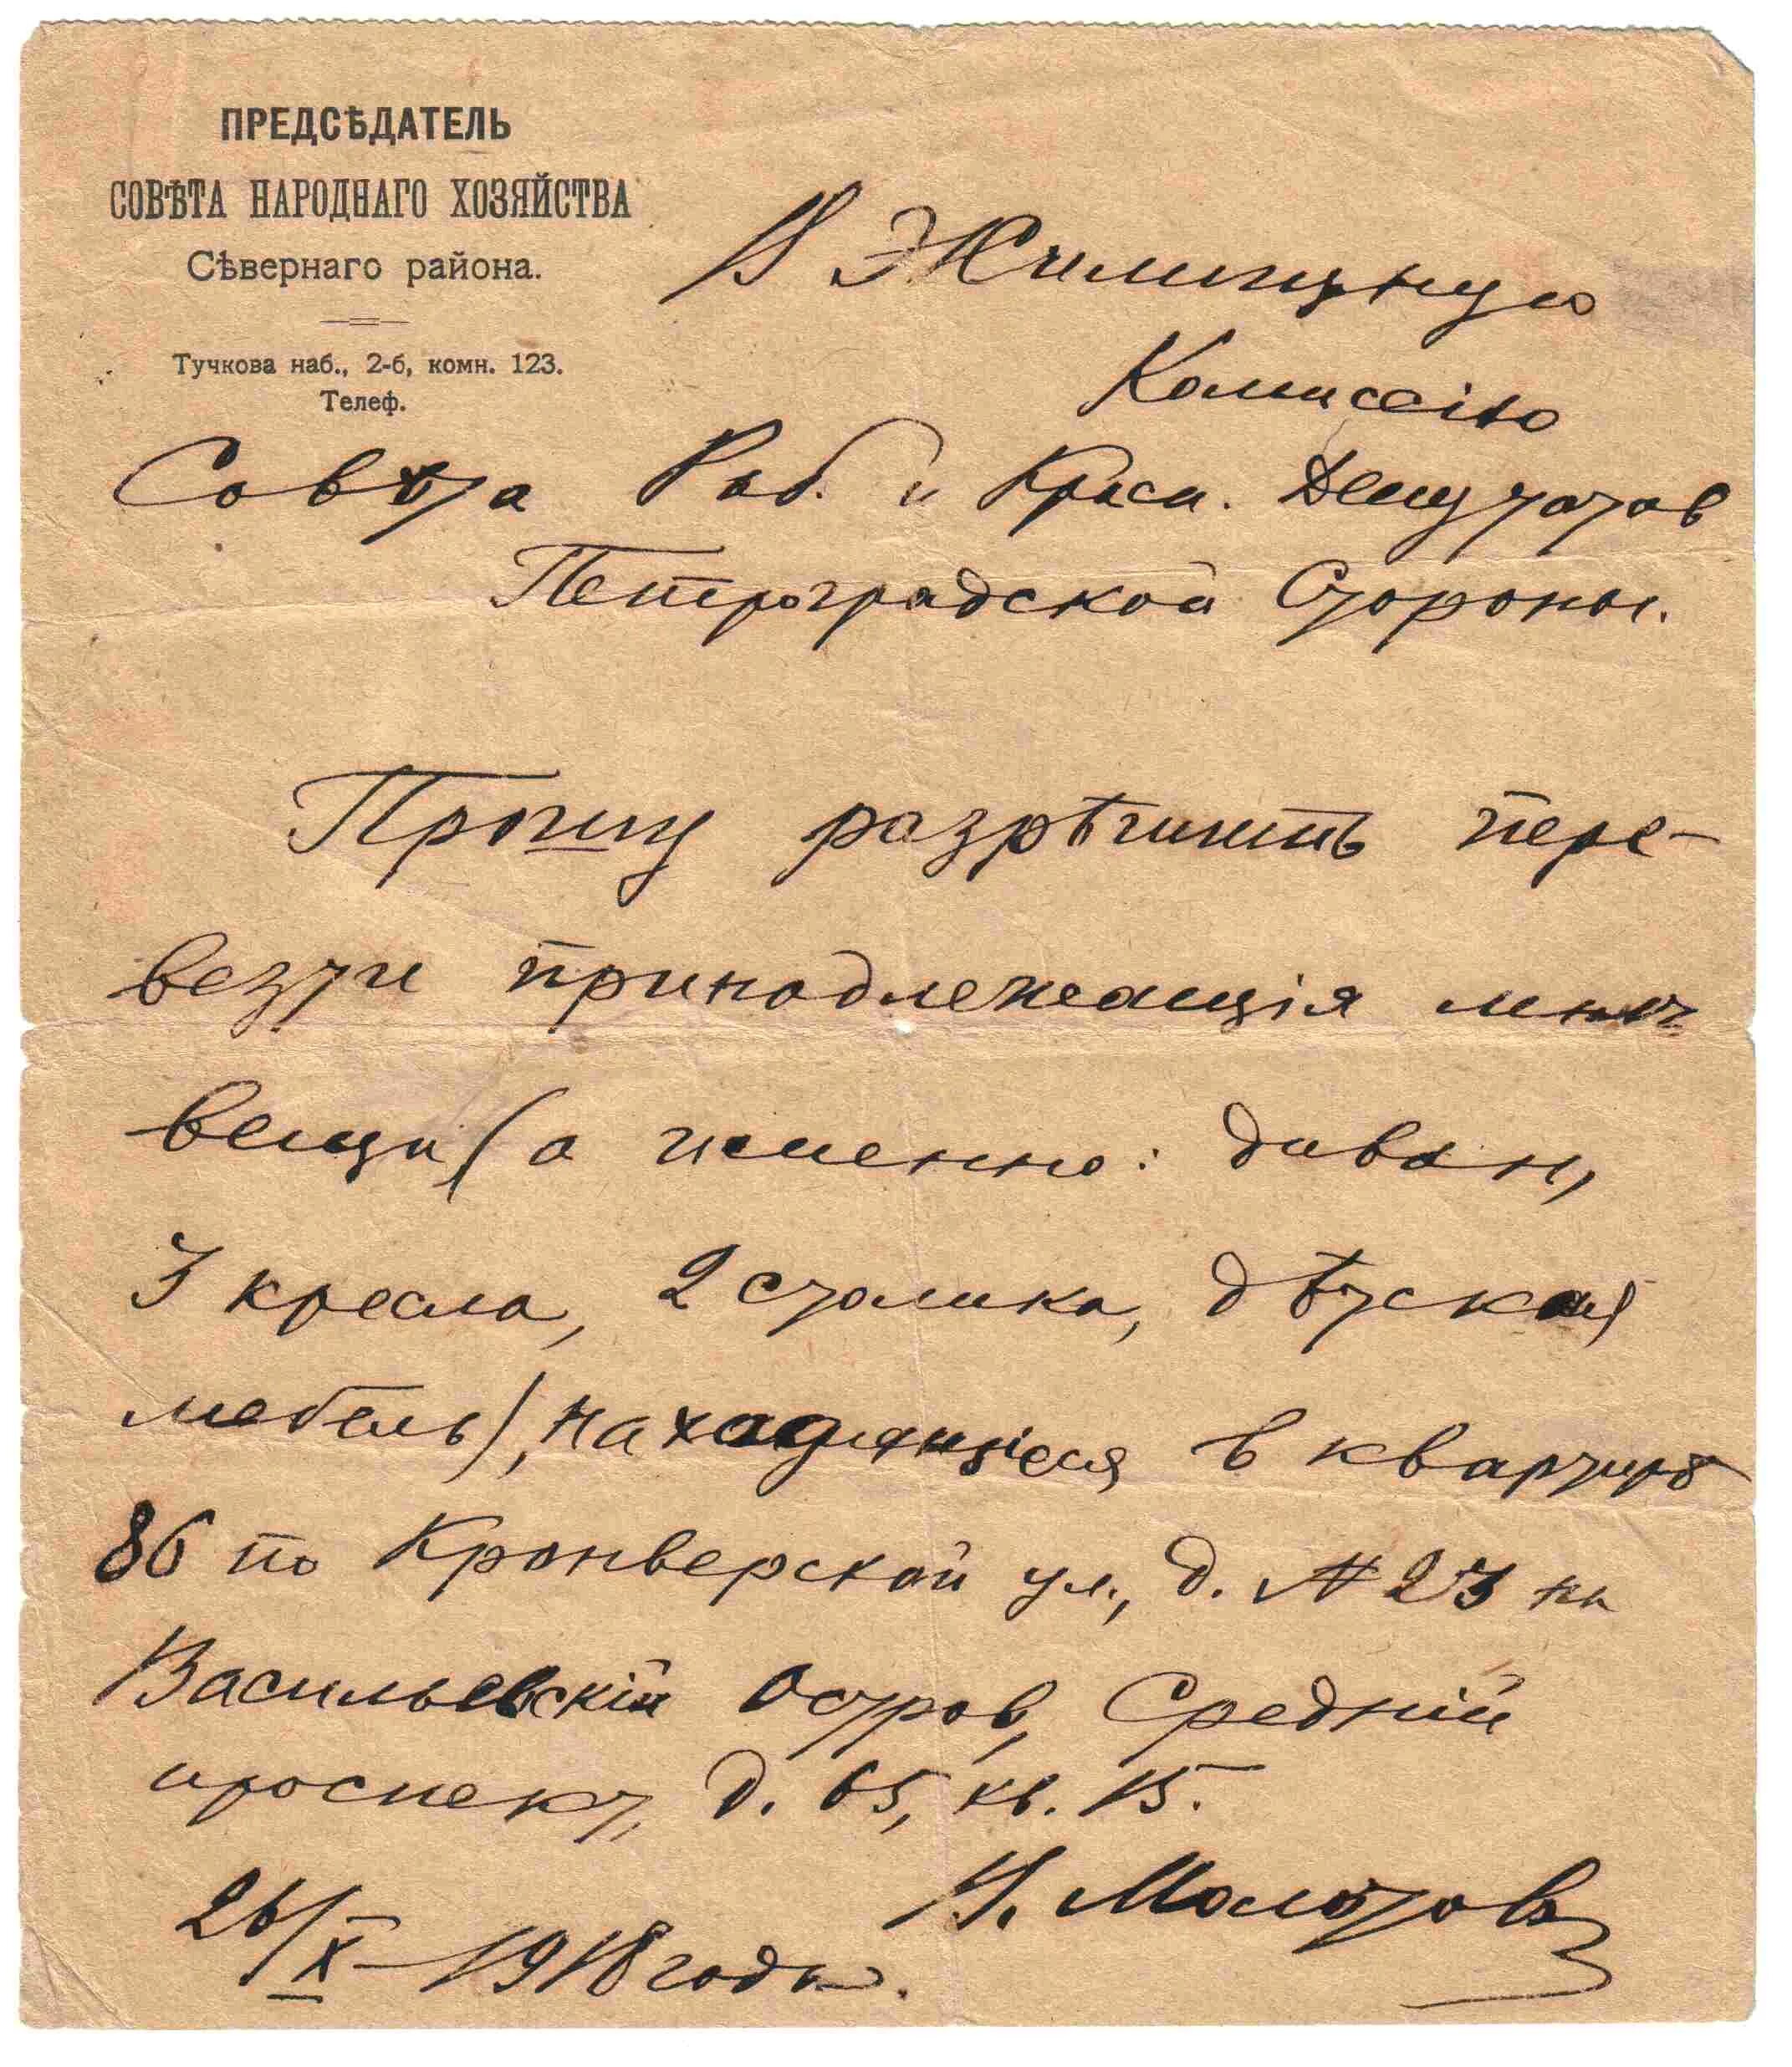 ПРЕДСѢДАТЕЛЬ
СОВѢТА НАРОДНАГО ХОЗЯЙСТВА
Сѣвернаго района.
Тучкова наб., 2-б, комн. 123.
Телеф.
В Жилищную
Комиссію
Совѣта Раб. и Красн. Депутатов
Петроградской Стороны.
Прошу разрѣшить пере-
везти принадлежащія мнѣ
вещи (а именно: диван,
3 кресла, 2 столика, дѣтская
мебель), находящіеся в квартирѣ
86 по Кронверкской ул., д. № 23 на
Васильевскій Остров, Средній
проспект, д. 65, кв. 15.
В. Молотов
26/X 1918 года.